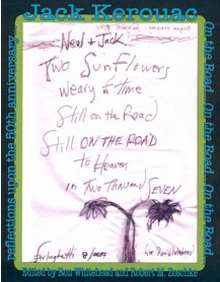 Jack Kerouac
On the Road. On the Road. On the Road.
reflections upon the 50th anniversary
Neal + Jack
Two Sunflowers
weary of time
Still on the Road
Still ON THE ROAD
to Heaven
in Two Thousand SEVEN
Ferlinghetti 8/2007
for
Edited by Paul Whitehead and Robert M.